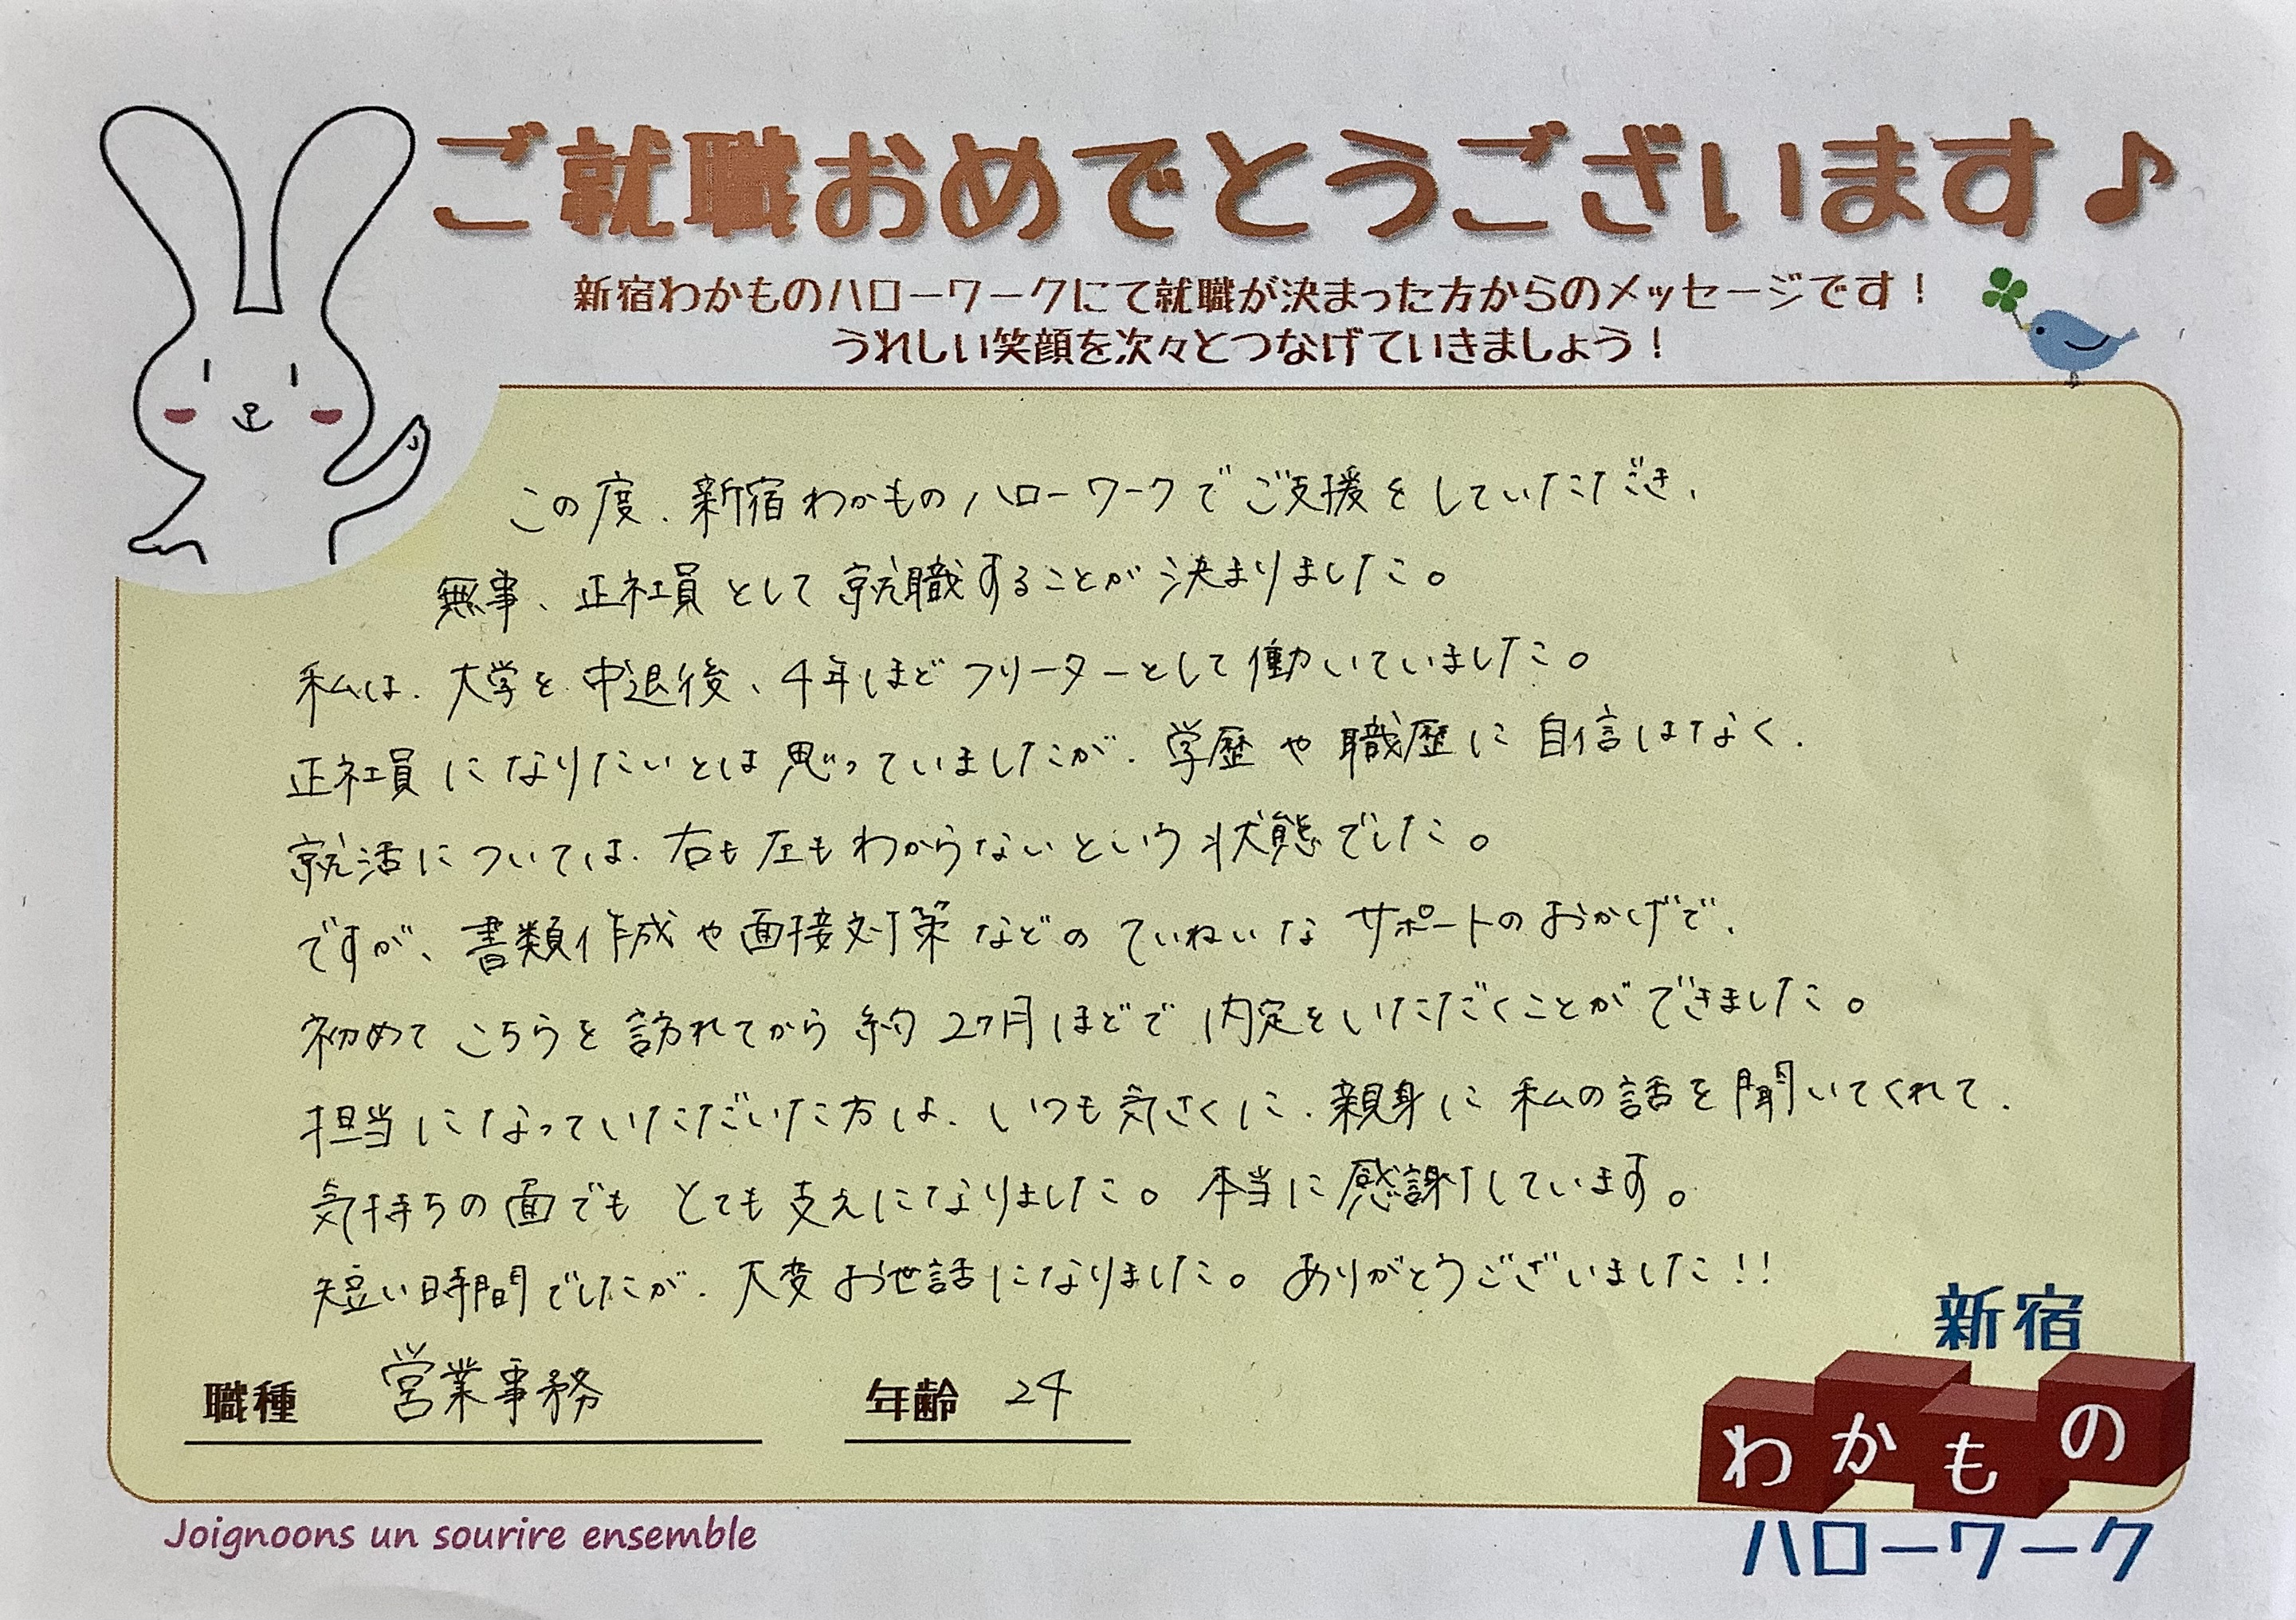 ご就職おめでとうございます♪
新宿わかものハローワークにて就職が決まった方からのメッセージです！
うれしい笑顔を次々とつなげていきましょう！
この度、新宿わかものハローワークでご支援をしていただき、
無事、正社員として就職することが決まりました。
私は、大学を中退後、4年ほどフリーターとして働いていました。
正社員になりたいとは思っていましたが、学歴や職歴に自信はなく、
就活については、右も左もわからないという状態でした。
ですが、書類作成や面接対策などのていねいなサポートのおかげで、
初めてこちらを訪れてから約2ヶ月ほどで内定をいただくことができました。
担当になっていただいた方は、いつも気さくに、親身に私の話を聞いてくれて、
気持ちの面でもとても支えになりました。本当に感謝しています。
短い時間でしたが、大変お世話になりました。ありがとうございました!!
職種 営業事務 年齢 24
新宿
わかもの
ハローワーク
Joignoons un sourire ensemble